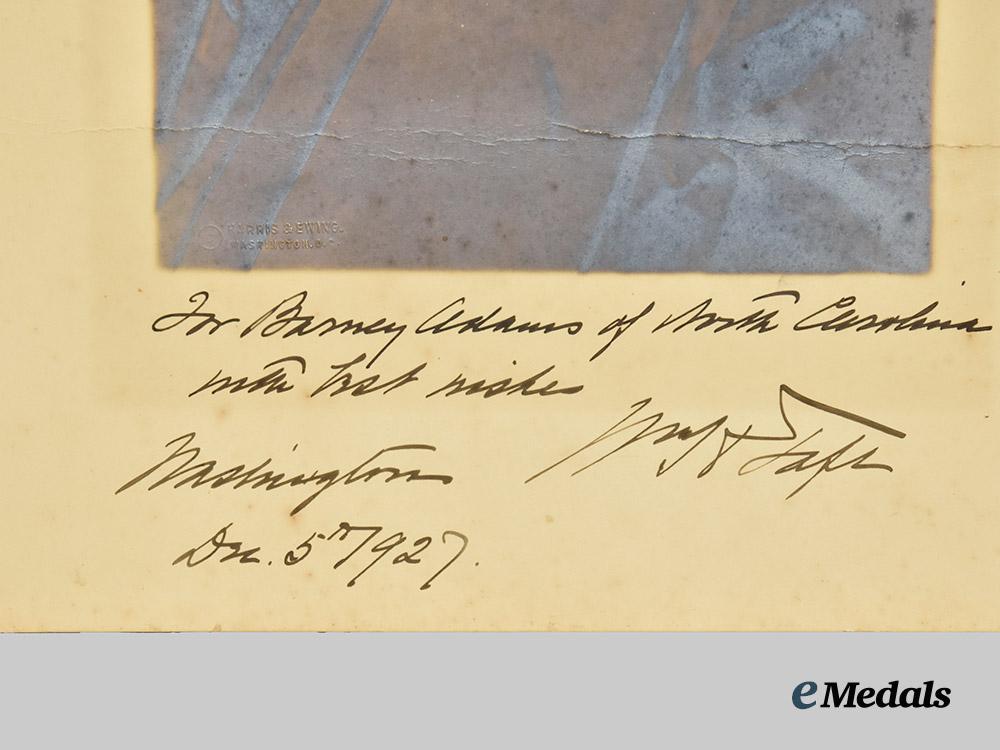 HARRIS & EWING.
WASHINGTON.D.C.
For Barney Adams of North Carolina
with best wishes
Wm H Taft
Washington
Dec. 5th 1927.
eMedals